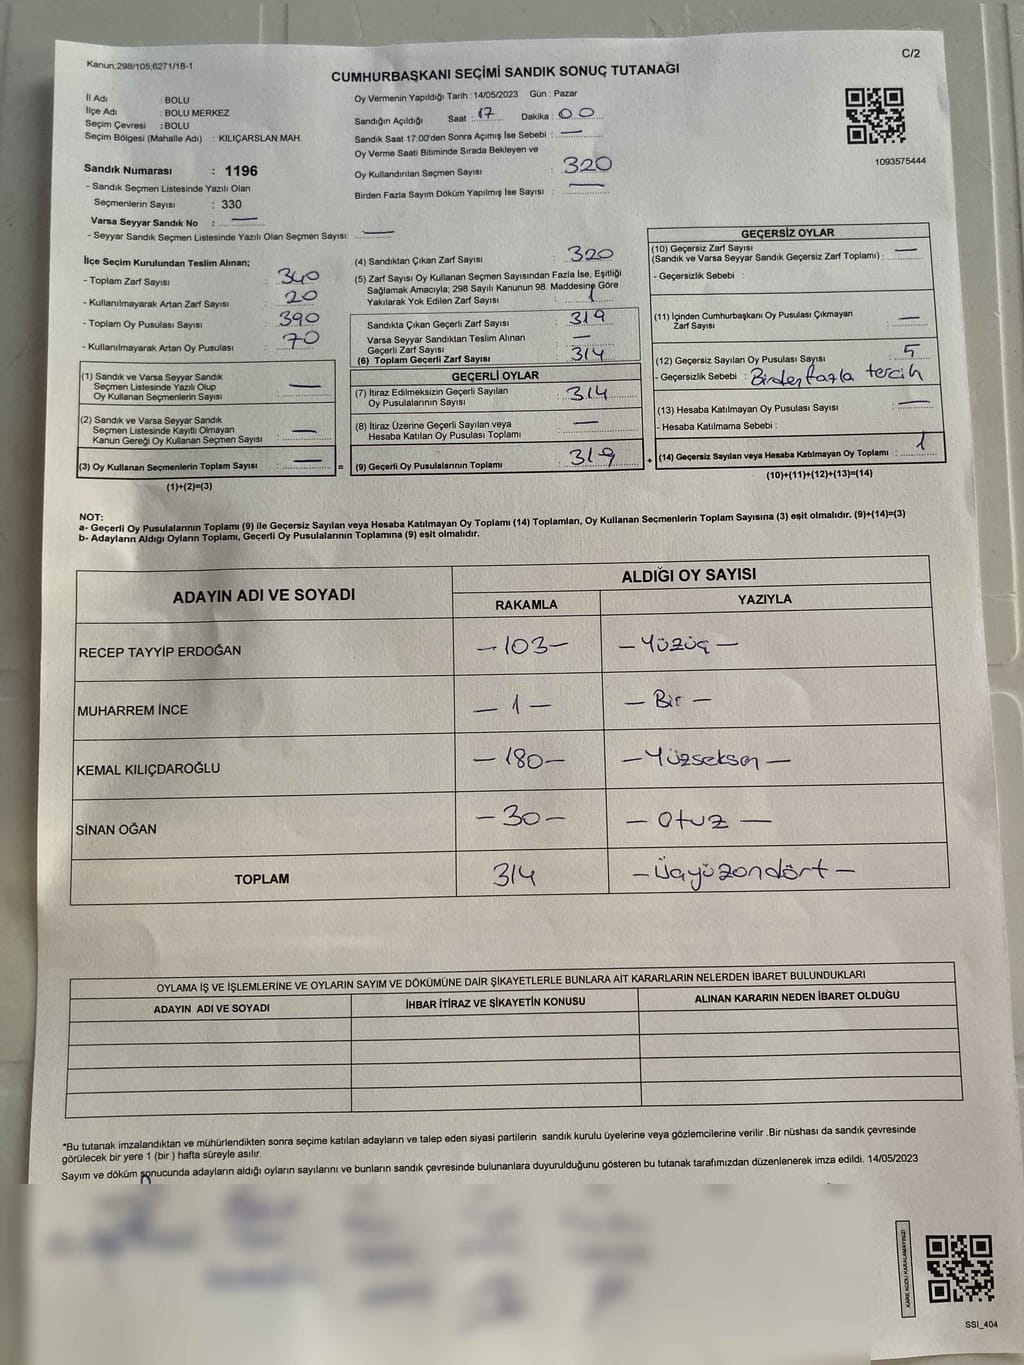 Kanun;298/105;6271/18-1
C/2
CUMHURBAŞKANI SEÇİMİ SANDIK SONUÇ TUTANAĞI
İl Adı : BOLU
İlçe Adı : BOLU MERKEZ
Seçim Çevresi : BOLU
Seçim Bölgesi (Mahalle Adı) : KILIÇARSLAN MAH.
Oy Vermenin Yapıldığı Tarih : 14/05/2023 Gün : Pazar
Sandığın Açıldığı Saat : 17 Dakika : 00
Sandık Saat 17:00'den Sonra Açımış İse Sebebi : —
Oy Verme Saati Bitiminde Sırada Bekleyen ve
Oy Kullandırılan Seçmen Sayısı : 320
Birden Fazla Sayım Döküm Yapılmış İse Sayısı : —
1093575444
Sandık Numarası : 1196
- Sandık Seçmen Listesinde Yazılı Olan
Seçmenlerin Sayısı : 330
Varsa Seyyar Sandık No : —
- Seyyar Sandık Seçmen Listesinde Yazılı Olan Seçmen Sayısı: —
İlçe Seçim Kurulundan Teslim Alınan;
- Toplam Zarf Sayısı : 340
- Kullanılmayarak Artan Zarf Sayısı : 20
- Toplam Oy Pusulası Sayısı : 390
- Kullanılmayarak Artan Oy Pusulası : 70
(1) Sandık ve Varsa Seyyar Sandık
Seçmen Listesinde Yazılı Olup
Oy Kullanan Seçmenlerin Sayısı : —
(2) Sandık ve Varsa Seyyar Sandık
Seçmen Listesinde Kayıtlı Olmayan
Kanun Gereği Oy Kullanan Seçmen Sayısı : —
(3) Oy Kullanan Seçmenlerin Toplam Sayısı : —
(1)+(2)=(3)
(4) Sandıktan Çıkan Zarf Sayısı : 320
(5) Zarf Sayısı Oy Kullanan Seçmen Sayısından Fazla İse, Eşitliği
Sağlamak Amacıyla; 298 Sayılı Kanunun 98. Maddesine Göre
Yakılarak Yok Edilen Zarf Sayısı : 1
Sandıkta Çıkan Geçerli Zarf Sayısı : 319
Varsa Seyyar Sandıktan Teslim Alınan
Geçerli Zarf Sayısı : —
(6) Toplam Geçerli Zarf Sayısı : 314
GEÇERLİ OYLAR
(7) İtiraz Edilmeksizin Geçerli Sayılan
Oy Pusulalarının Sayısı : 314
(8) İtiraz Üzerine Geçerli Sayılan veya
Hesaba Katılan Oy Pusulası Toplamı : —
= (9) Geçerli Oy Pusulalarının Toplamı : 319
GEÇERSİZ OYLAR
(10) Geçersiz Zarf Sayısı
(Sandık ve Varsa Seyyar Sandık Geçersiz Zarf Toplamı) : —
- Geçersizlik Sebebi :
(11) İçinden Cumhurbaşkanı Oy Pusulası Çıkmayan
Zarf Sayısı : —
(12) Geçersiz Sayılan Oy Pusulası Sayısı : 5
- Geçersizlik Sebebi : Birden fazla tercih
(13) Hesaba Katılmayan Oy Pusulası Sayısı : —
- Hesaba Katılmama Sebebi :
+ (14) Geçersiz Sayılan veya Hesaba Katılmayan Oy Toplamı : 1
(10)+(11)+(12)+(13)=(14)
NOT:
a- Geçerli Oy Pusulalarının Toplamı (9) ile Geçersiz Sayılan veya Hesaba Katılmayan Oy Toplamı (14) Toplamları, Oy Kullanan Seçmenlerin Toplam Sayısına (3) eşit olmalıdır. (9)+(14)=(3)
b- Adayların Aldığı Oyların Toplamı, Geçerli Oy Pusulalarının Toplamına (9) eşit olmalıdır.
ADAYIN ADI VE SOYADI
ALDIĞI OY SAYISI
RAKAMLA YAZIYLA
RECEP TAYYİP ERDOĞAN —103— —Yüzüç—
MUHARREM İNCE —1— —Bir—
KEMAL KILIÇDAROĞLU —180— —Yüzseksen—
SİNAN OĞAN —30— —otuz—
TOPLAM 314 —Üçyüzondört—
OYLAMA İŞ VE İŞLEMLERİNE VE OYLARIN SAYIM VE DÖKÜMÜNE DAİR ŞİKAYETLERLE BUNLARA AİT KARARLARIN NELERDEN İBARET BULUNDUKLARI
ADAYIN ADI VE SOYADI İHBAR İTİRAZ VE ŞİKAYETİN KONUSU ALINAN KARARIN NEDEN İBARET OLDUĞU
*Bu tutanak imzalandıktan ve mühürlendikten sonra seçime katılan adayların ve talep eden siyasi partilerin sandık kurulu üyelerine veya gözlemcilerine verilir .Bir nüshası da sandık çevresinde
görülecek bir yere 1 (bir ) hafta süreyle asılır.
Sayım ve döküm sonucunda adayların aldığı oyların sayılarını ve bunların sandık çevresinde bulunanlara duyurulduğunu gösteren bu tutanak tarafımızdan düzenlenerek imza edildi. 14/05/2023
KARE KODU KARALAMAYINIZ!
SSI_404